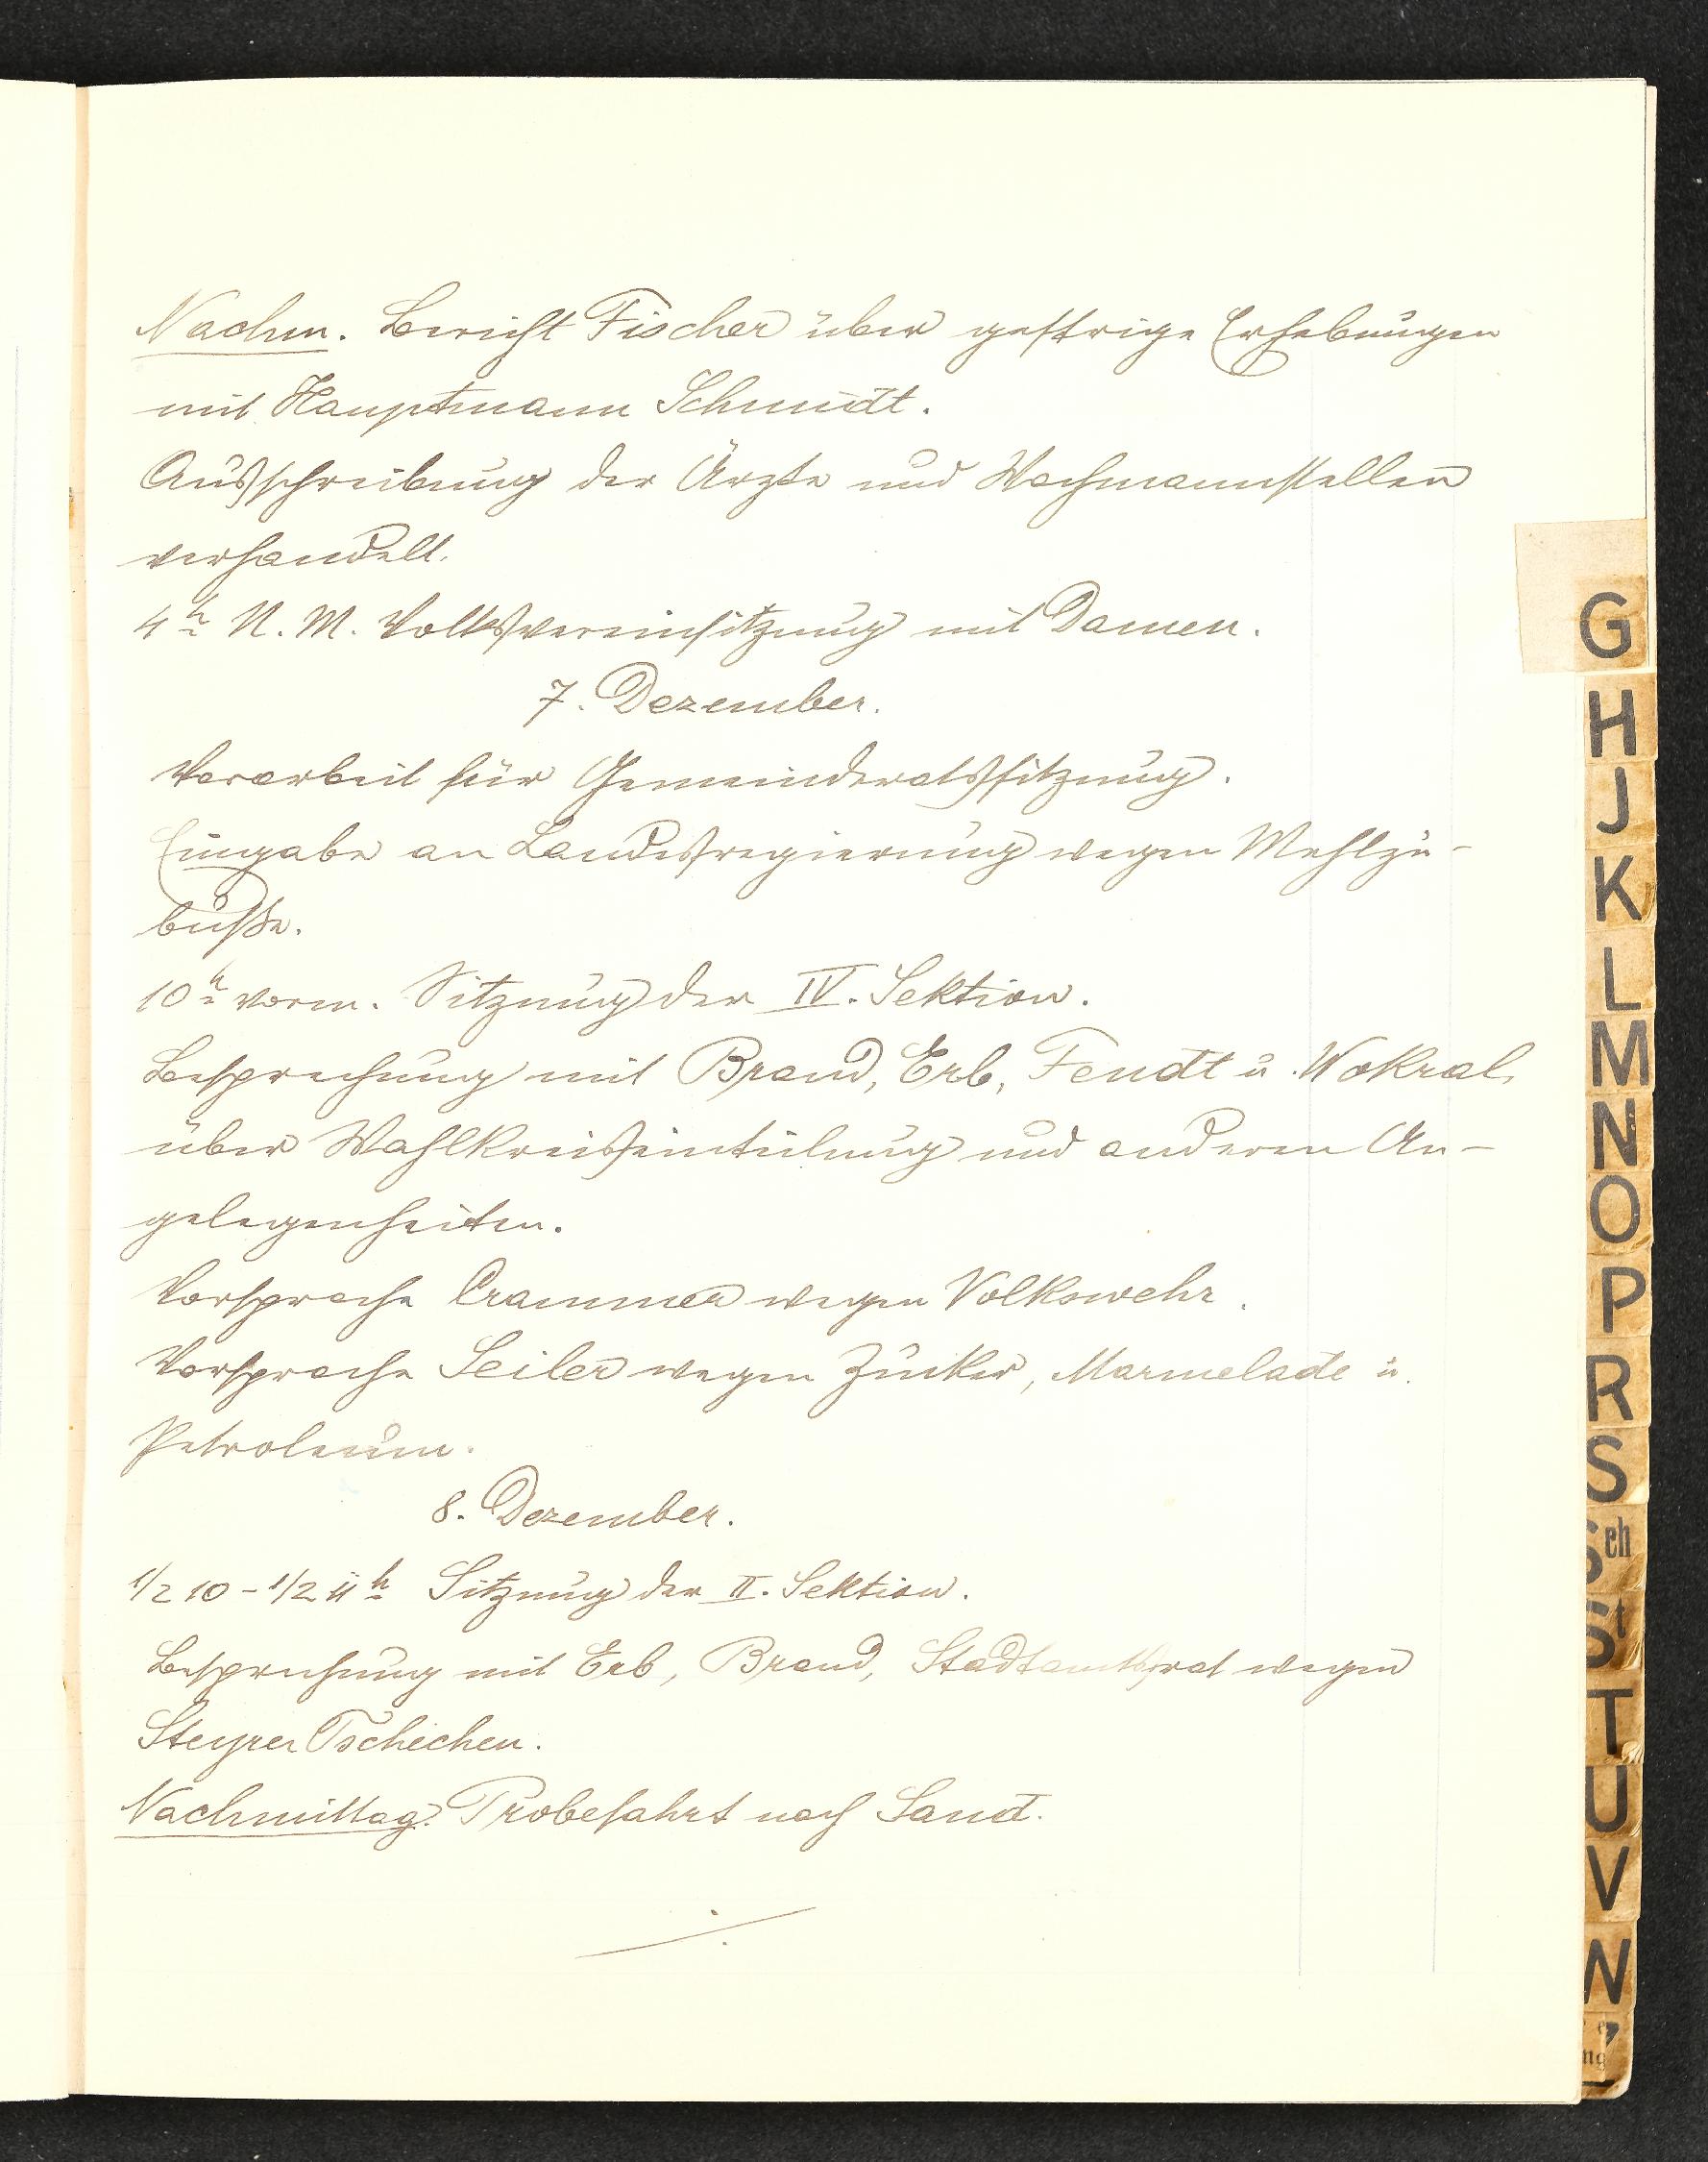 Nachm. Bericht Fischer über gestrige Erhebungen
mit Hauptmann Schmidt.
Ausschreibung der Ärzte und Wachmannstellen
verhandelt.
4h N. M. Volksvereinsitzung mit Damen.
7. Dezember.
Vorarbeit für Gemeinderatssitzung.
Eingabe an Landesregierung wegen Mehlzu-
buße.
10h vorm. Sitzung der IV. Sektion.
Besprechung mit Brand, Erb, Fendt u. Wokral
über Wahlkreiseinteilung und anderen An-
gelegenheiten.
Vorsprache Crammer wegen Volkswehr.
Vorsprache Seiler wegen Zucker, Marmelade u.
Petroleum.
8. Dezember.
1/2 10 - 1/2 11h Sitzung der II. Sektion.
Besprechung mit Erb, Brand, Stadtamtsrat wegen
Steyrer Tschechen.
Nachmittag. Probefahrt nach Sand.
G
H
J
K
L
M
N
O
P
R
S
Sch
St
T
U
V